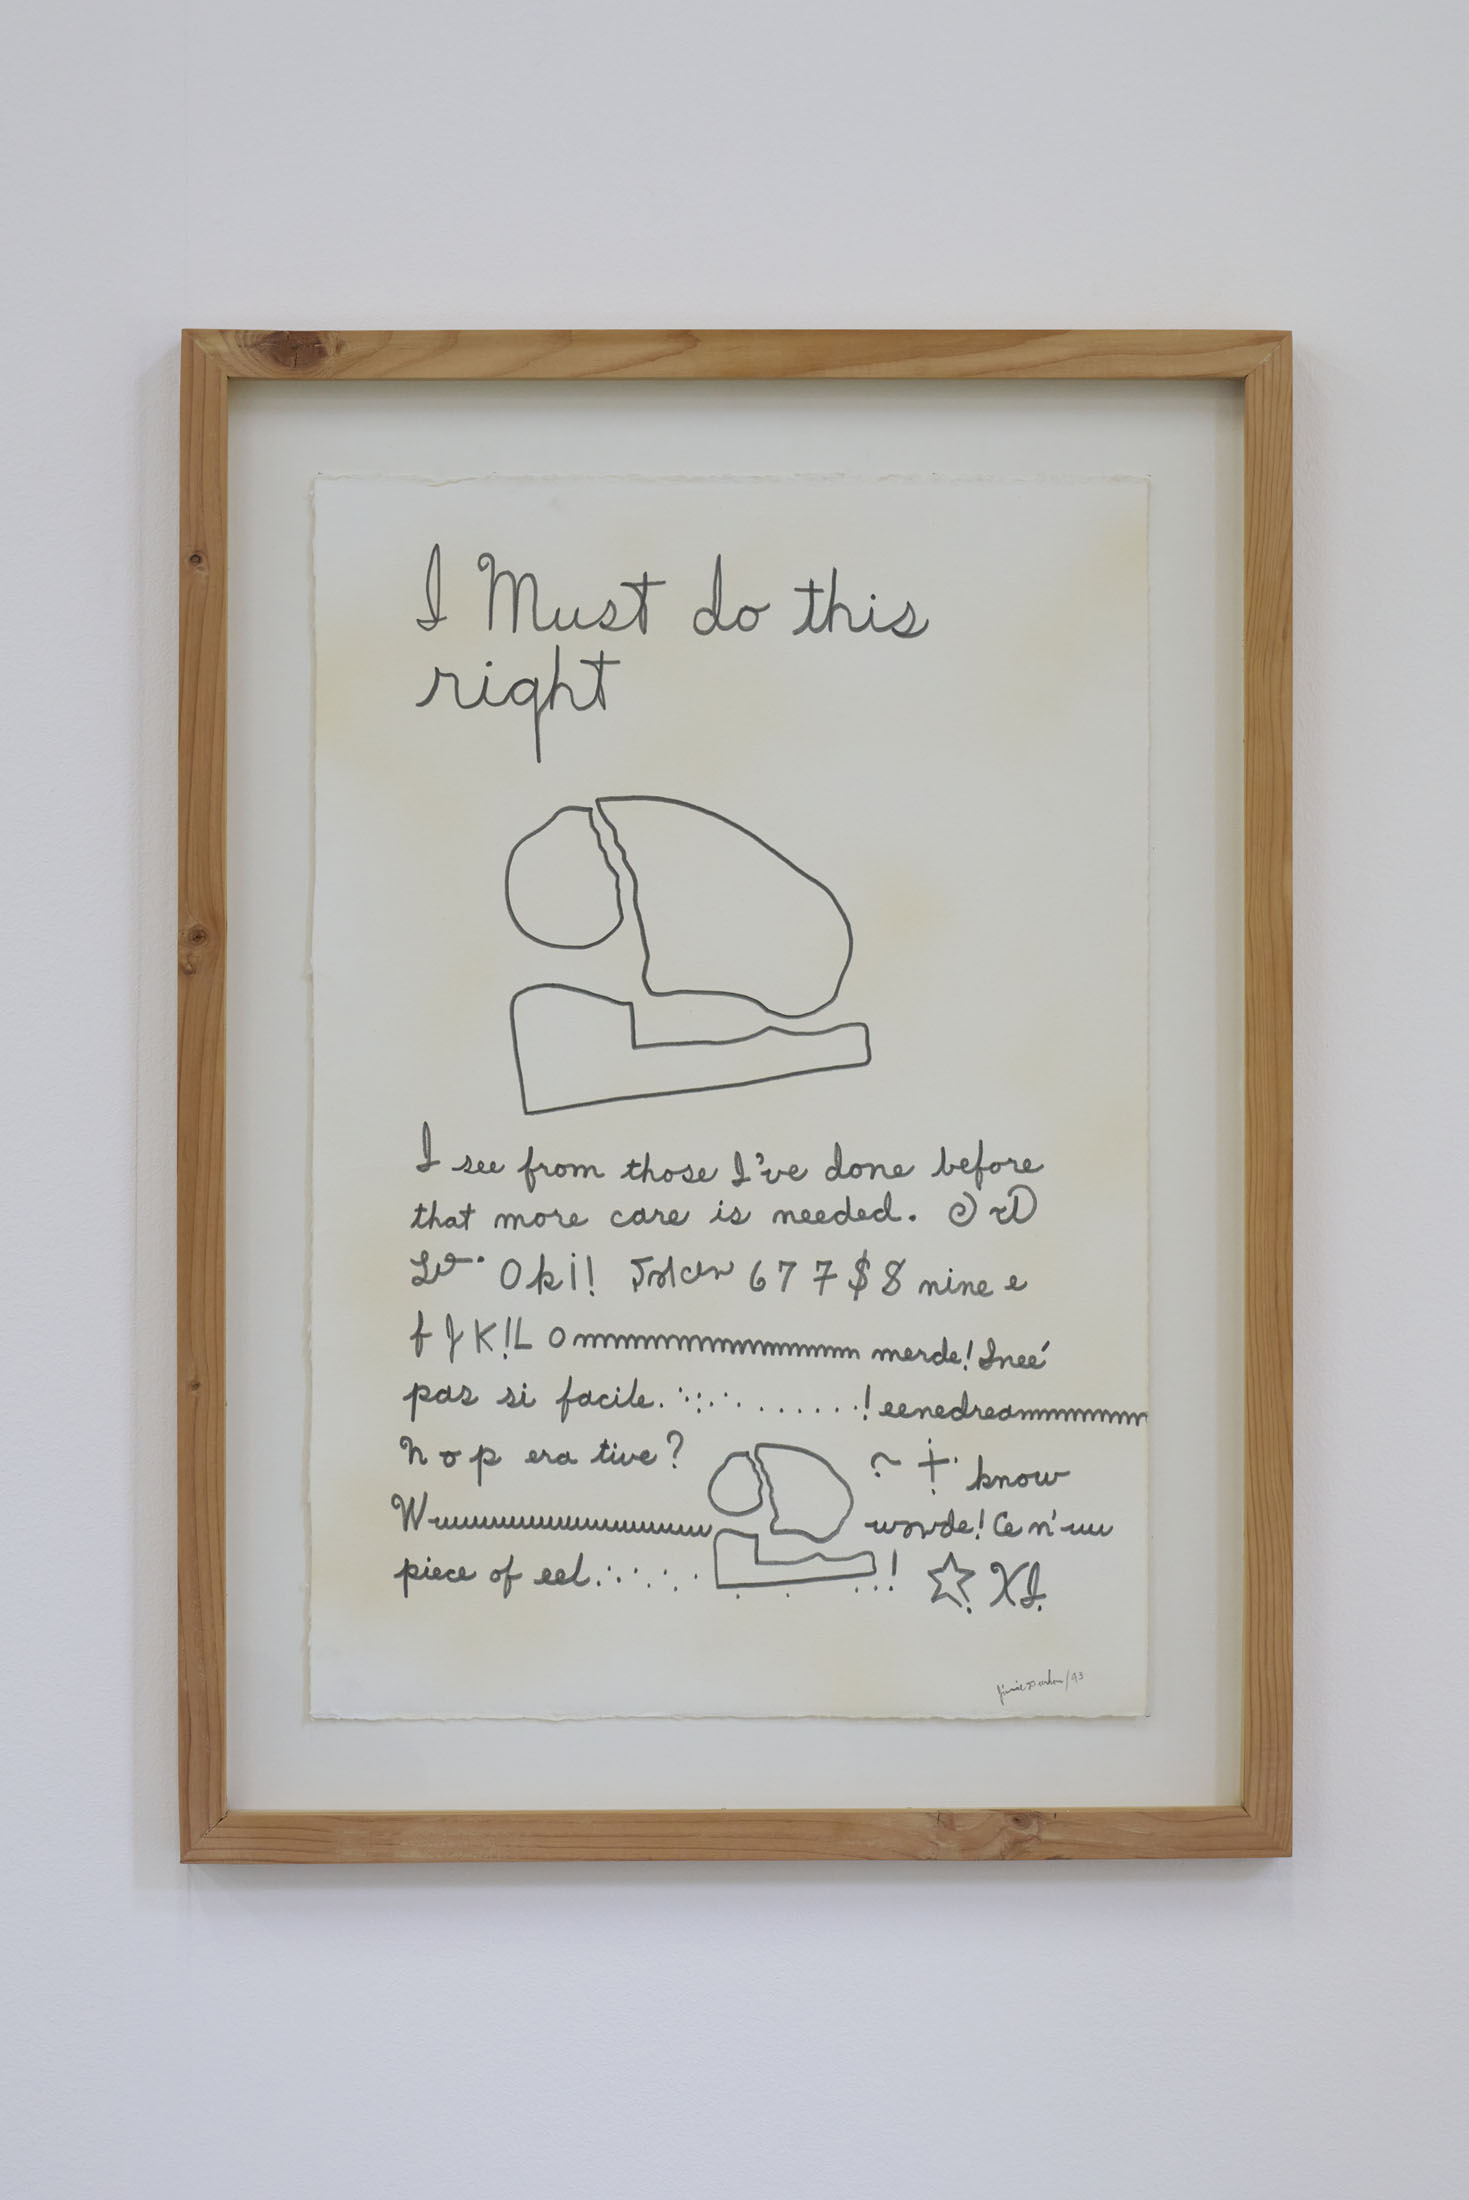 I Must do this
right
I see from those I've done before
that more care is needed.
Oki! 6 7 7 $ 8 nine e
f J K!L Ommmmmmmmmmmmmmmm merde! Ineé
pas si facile. . . . . . . . . . . . . . ! eenedreammmmmmmm
n o p era tive? know
Wuuuuuuuuuuuuuuuuuuuu worde! Ce n'uu
piece of eel. : . . . . . . . . . . ! ☆ XI.
/93